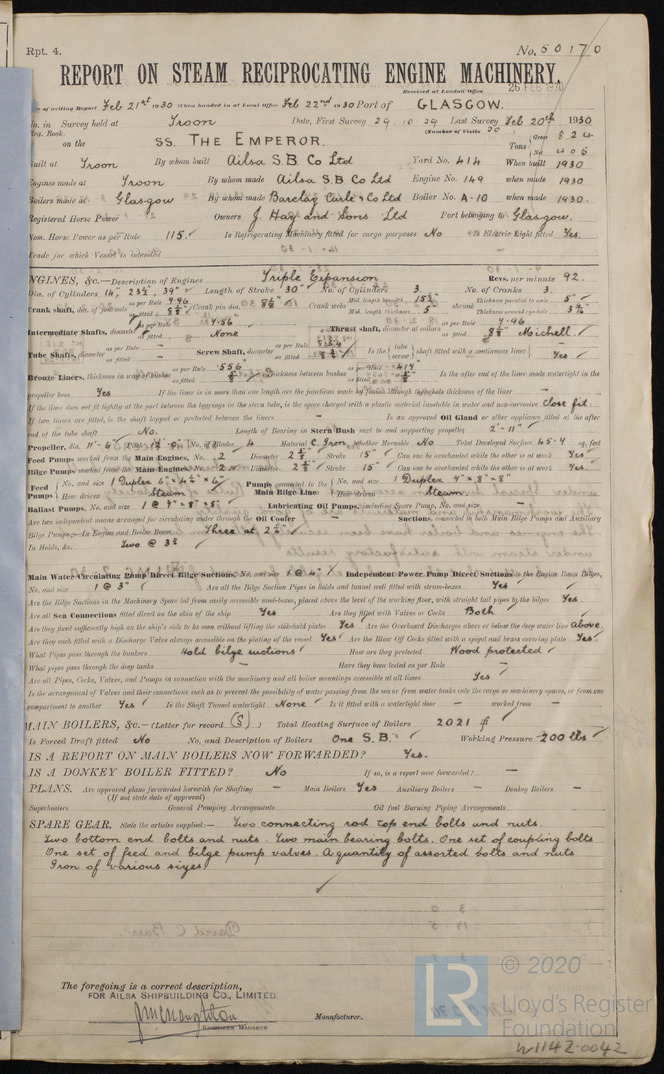 Rpt. 4. No. 50170
REPORT ON STEAM RECIPROCATING ENGINE MACHINERY.
Received at London Office 26 FEB 1930
of writing Report Feb 21st 1930 When handed in at Local Office Feb 22nd 1930 Port of GLASGOW.
No. in Survey held at Troon Date, First Survey 29.10.29 Last Survey Feb 20th 1930
Reg. Book. (Number of Visits 20)
on the SS. THE EMPEROR. Tons Gross 824
Net 405
Built at Troon By whom built Ailsa S.B Co Ltd Yard No. 414 When built 1930
Engines made at Troon By whom made Ailsa S.B Co Ltd Engine No. 149 when made 1930
Boilers made at Glasgow By whom made Barclay Curle & Co Ltd Boiler No. A-10 when made 1930.
Registered Horse Power Owners J. Hay and Sons Ltd Port belonging to Glasgow.
Nom. Horse Power as per Rule 115. Is Refrigerating Machinery fitted for cargo purposes No Is Electric Light fitted Yes.
Trade for which Vessel is intended
ENGINES, &c.—Description of Engines Triple Expansion Revs. per minute 92.
Dia. of Cylinders 14", 23½", 39" Length of Stroke 30" No. of Cylinders 3. No. of Cranks 3.
Crank shaft, dia. of journals as per Rule 7.96 Crank pin dia. 8⅛" Crank webs Mid. length breadth 15½" Thickness parallel to axis 5"
as fitted 8⅛" Mid. length thickness 5" shrunk Thickness around eye-hole
Intermediate Shafts, diameter as per Rule 7.56" Thrust shaft, diameter at collars as per Rule 7.96
as fitted None as fitted 8⅛" Michell.
Tube Shafts, diameter as per Rule — Screw Shaft, diameter as per Rule Is the tube screw shaft fitted with a continuous liner Yes
Bronze Liners, thickness in way of bushes as per Rule .556 Thickness between bushes as per Rule .417 Is the after end of the liner made watertight in the
propeller boss Yes If the liner is in more than one length are the junctions made by fusion through the whole thickness of the liner —
If the liner does not fit tightly at the part between the bearings in the stern tube, is the space charged with a plastic material insoluble in water and non-corrosive Close fit.
If two liners are fitted, is the shaft lapped or protected between the liners — Is an approved Oil Gland or other appliance fitted at the after
end of the tube shaft No. Length of Bearing in Stern Bush next to and supporting propeller 2'-11"
Propeller, dia. 11'-6" Pitch No. of Blades 4 Material C. Iron. whether Moveable No Total Developed Surface 45.4 sq. feet
Feed Pumps worked from the Main Engines, No. 2 Diameter Stroke 15" Can one be overhauled while the other is at work Yes
Bilge Pumps worked from the Main Engines, No. 2 Diameter Stroke 15" Can one be overhauled while the other is at work Yes
Feed Pumps No. and size 1 Duplex 6" × 4½" × 6" Pumps connected to the Main Bilge Line No. and size 1 Duplex 4" × 8" × 8"
How driven Steam How driven Steam
Ballast Pumps, No. and size Lubricating Oil Pumps, including Spare Pump, No. and size
Are two independent means arranged for circulating water through the Oil Cooler Suctions, connected to both Main Bilge Pumps and Auxiliary
Bilge Pumps;—In Engine and Boiler Room Three at 2½"
In Holds, &c. Two @ 3½
Main Water Circulating Pump Direct Bilge Suctions, No. and size 1 @ 4" Independent Power Pump Direct Suctions to the Engine Room Bilges,
No. and size 1 @ 3" Are all the Bilge Suction Pipes in holds and tunnel well fitted with strum-boxes Yes
Are the Bilge Suctions in the Machinery Space led from easily accessible mud-boxes, placed above the level of the working floor, with straight tail pipes to the bilges Yes.
Are all Sea Connections fitted direct on the skin of the ship Yes Are they fitted with Valves or Cocks Both
Are they fixed sufficiently high on the ship's side to be seen without lifting the stokehold plates Yes Are the Overboard Discharges above or below the deep water line above
Are they each fitted with a Discharge Valve always accessible on the plating of the vessel Yes Are the Blow Off Cocks fitted with a spigot and brass covering plate Yes
What Pipes pass through the bunkers Hold bilge suctions How are they protected Wood protected
What pipes pass through the deep tanks — Have they been tested as per Rule —
Are all Pipes, Cocks, Valves, and Pumps in connection with the machinery and all boiler mountings accessible at all times Yes
Is the arrangement of Valves and their connections such as to prevent the possibility of water passing from the sea or from water tanks into the cargo or machinery spaces, or from one
compartment to another Yes Is the Shaft Tunnel watertight None Is it fitted with a watertight door — worked from —
MAIN BOILERS, &c.—(Letter for record (S)) Total Heating Surface of Boilers 2021
Is Forced Draft fitted No No. and Description of Boilers One S.B. Working Pressure 200 lbs
IS A REPORT ON MAIN BOILERS NOW FORWARDED? Yes.
IS A DONKEY BOILER FITTED? No If so, is a report now forwarded? —
PLANS. Are approved plans forwarded herewith for Shafting — Main Boilers Yes Auxiliary Boilers — Donkey Boilers —
(If not state date of approval)
Superheaters General Pumping Arrangements Oil fuel Burning Piping Arrangements
SPARE GEAR. State the articles supplied:— Two connecting rod top end bolts and nuts.
Two bottom end bolts and nuts. Two main bearing bolts. One set of coupling bolts
One set of feed and bilge pump valves. A quantity of assorted bolts and nuts
Iron of various sizes
The foregoing is a correct description,
FOR AILSA SHIPBUILDING CO., LIMITED.
Manufacturer.
ENGINEER MANAGER
LR © 2020
Lloyd's Register
Foundation
W1142-0042